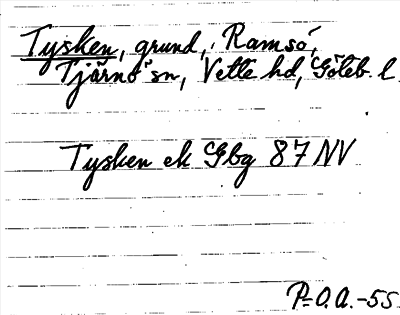 Tysken, grund, Ramsö,
Tjärnö sn, Vette hd, Göteb. l.
Tysken ek Gbg 87 NV
P-O.A.-55